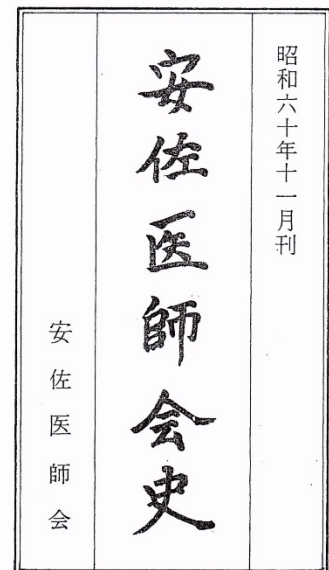 昭和六十年十一月刊
安佐医師会史
安佐医師会